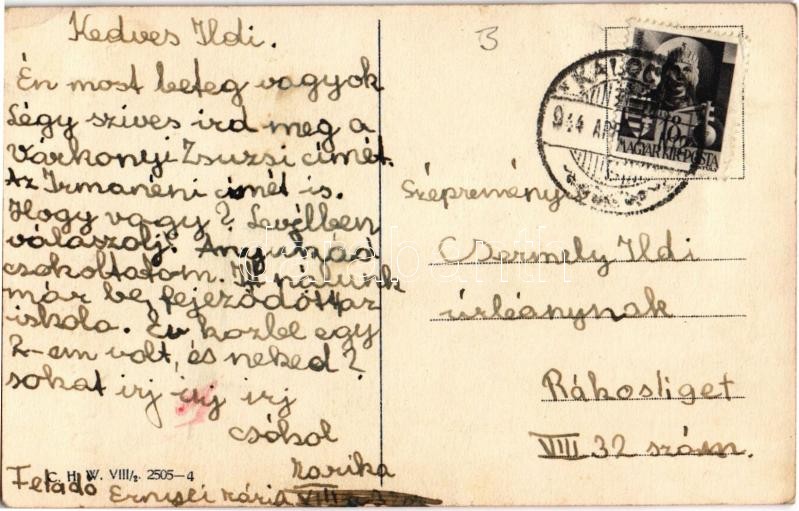 Kedves Ildi.
Én most beteg vagyok
Légy szives ird meg a
Várkonyi Zsuzsi címét.
Az Irmanéni címét is.
Hogy vagy? Levélben
válaszolj. Anyukád
csokoltatom. Itt nálunk
már be fejeződött az
iskola. Év közbe egy
2-em volt, és neked?
sokat irj irj irj
csókol
Marika
C. H. W. VIII/2. 2505-4
Feladó Mária
3
KALOCSA
944 APR
18
MAGYAR KIR. POSTA
Szépreményü
Csermely Ildi
úrleánynak
Rákosliget
VIII 32 szám.